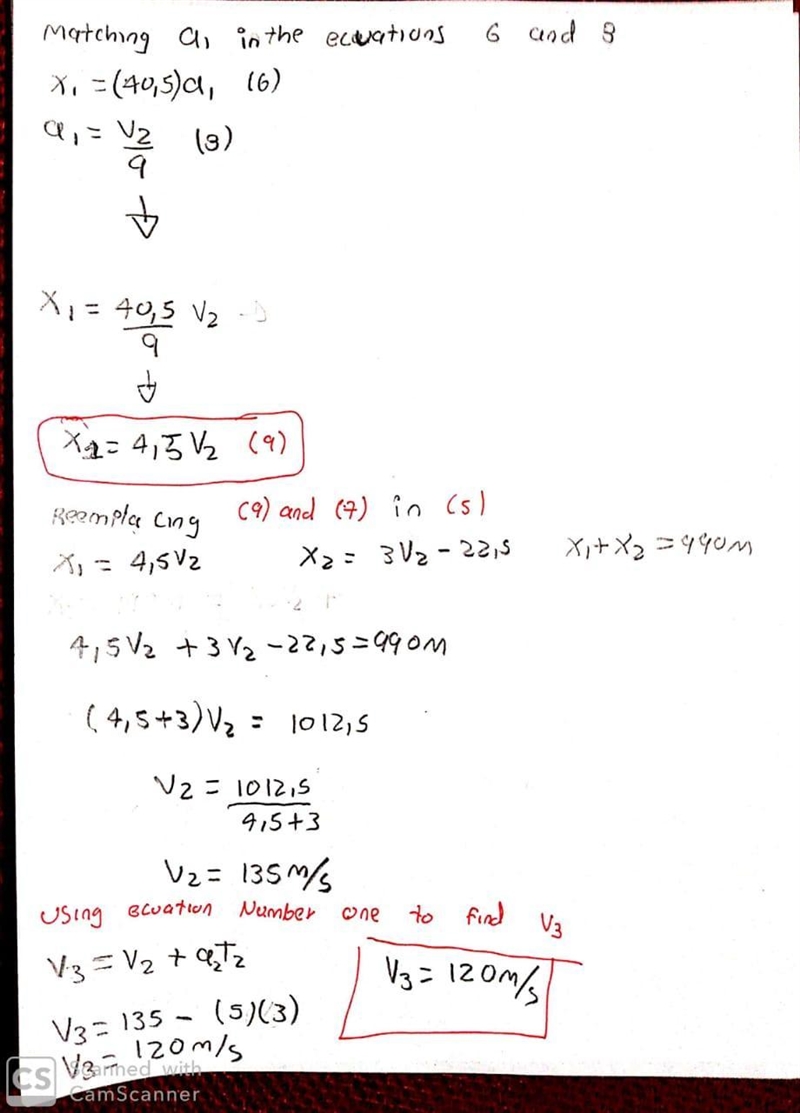 Matching a₁ in the ecuations 6 and 8
X₁ = (40,5)a₁ (6)
a₁ = V₂/9 (8)
X₁ = 40,5/9 V₂
X₁ = 4,5 V₂ (9)
Reemplacing (9) and (7) in (5)
X₁ = 4,5V₂ X₂ = 3V₂ - 22,5 X₁ + X₂ = 990M
4,5V₂ + 3V₂ - 22,5 = 990M
(4,5+3)V₂ = 1012,5
V₂ = 1012,5/4,5+3
V₂ = 135 m/s
Using ecuation Number one to find V₃
V₃ = V₂ + a₂T₂
V₃ = 120m/s
V₃ = 135 - (5)(3)
V₃ = 120 m/s
CS Scanned with
CamScanner